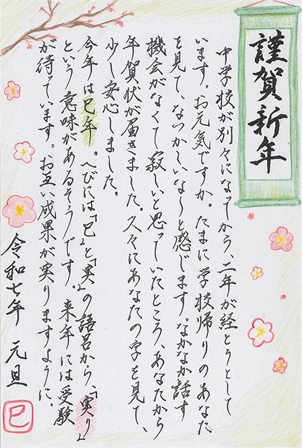 謹賀新年
中学校が別々になってから、二年が経とうとして
います。お元気ですか。たまに学校帰りのあなた
を見て、なつかしいな〜と感じます。なかなか話す
機会がなくて寂しいと思っていたところ、あなたから
年賀状が届きました。久々にあなたの字を見て、
少し安心しました。
今年は巳年 へびには「巳」と「実」の語呂から、「実り」
という意味があるそうです。来年には受験
が待っています。お互い成果が実りますように。
令和七年 元旦
巳